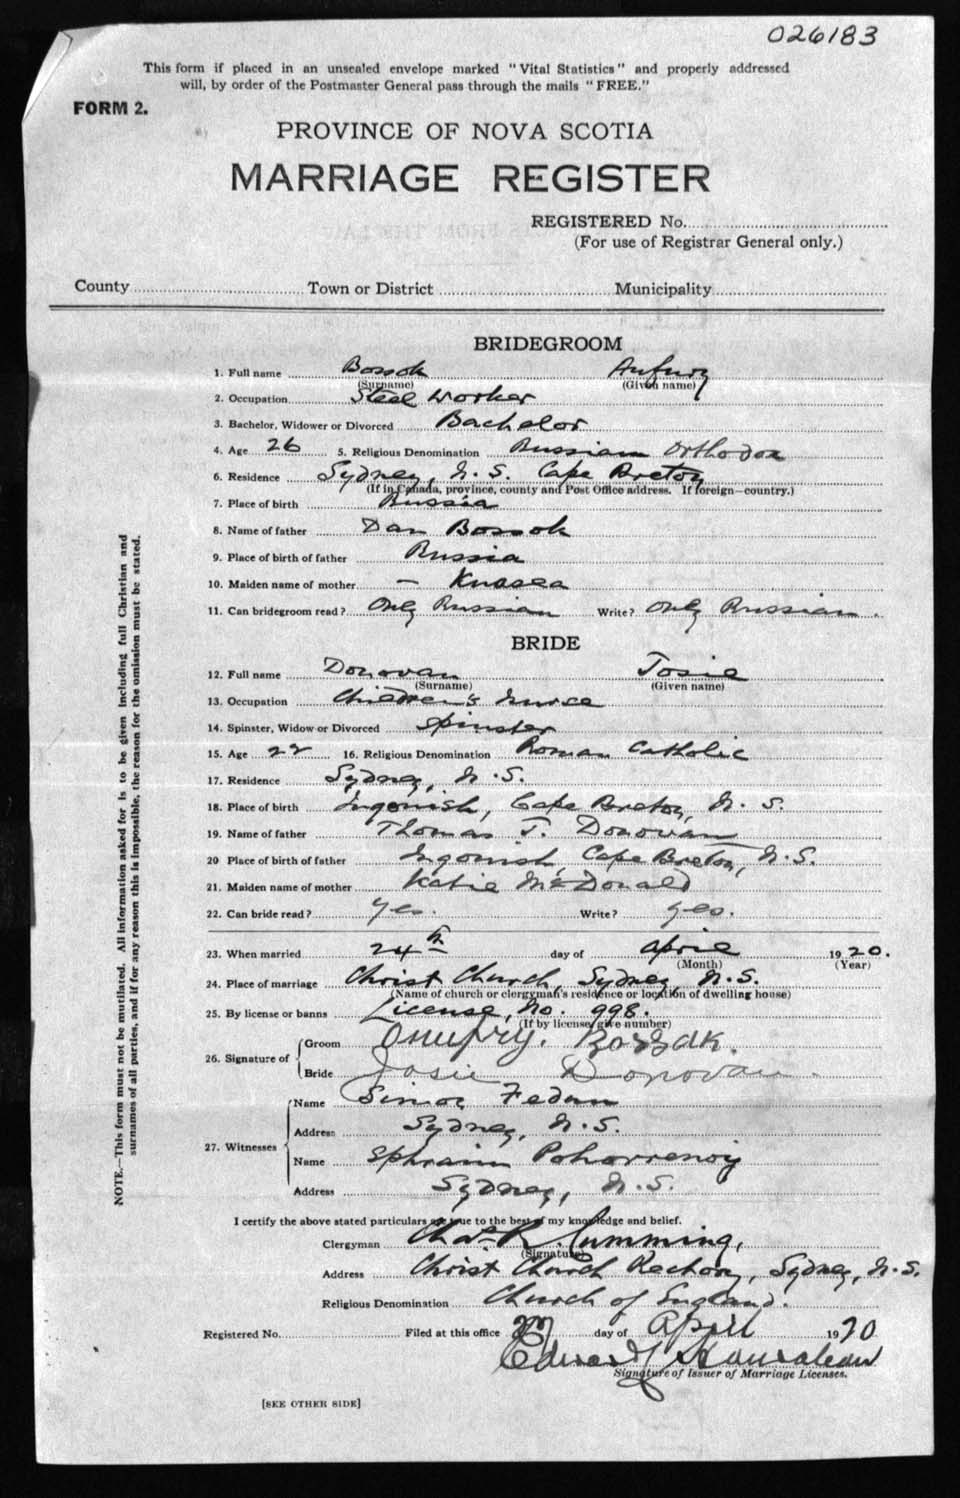 026183
This form if placed in an unsealed envelope marked "Vital Statistics" and properly addressed
will, by order of the Postmaster General pass through the mails "FREE."
FORM 2.
PROVINCE OF NOVA SCOTIA
MARRIAGE REGISTER
REGISTERED No.
(For use of Registrar General only.)
County Town or District Municipality
BRIDEGROOM
1. Full name Bossok
(Surname) (Given name)
2. Occupation Steel Worker
3. Bachelor, Widower or Divorced Bachelor
4. Age 26 5. Religious Denomination Russian Orthodox
6. Residence Sydney, N. S. Cape Breton
(If in Canada, province, county and Post Office address. If foreign—country.)
7. Place of birth Russia
8. Name of father Dan Bossok
9. Place of birth of father Russia
10. Maiden name of mother —
11. Can bridegroom read? Only Russian Write? Only Russian.
BRIDE
12. Full name Donovan Josie
(Surname) (Given name)
13. Occupation Children's Nurse
14. Spinster, Widow or Divorced Spinster
15. Age 22 16. Religious Denomination Roman Catholic
17. Residence Sydney, N.S.
18. Place of birth Ingonish, Cape Breton, N. S.
19. Name of father Thomas J. Donovan
20 Place of birth of father Ingonish, Cape Breton, N.S.
21. Maiden name of mother Katie McDonald
22. Can bride read? Yes. Write? yes.
23. When married 24th day of April 1920.
(Month) (Year)
24. Place of marriage Christ Church, Sydney, N.S.
(Name of church or clergyman's residence or location of dwelling house)
25. By license or banns License, No. 998.
(If by license, give number)
26. Signature of
Groom Onufry. Bossak.
Bride Josie Donovan.
27. Witnesses
Name Simon Fedan
Address Sydney, N.S.
Name Ephraim
Address Sydney, N.S.
I certify the above stated particulars are true to the best of my knowledge and belief.
Clergyman Chas. R. Cumming,
(Signature)
Address Christ Church Rectory, Sydney, N.S.
Religious Denomination Church of England.
Registered No. Filed at this office 27 day of April 1920
Edward
Signature of Issuer of Marriage Licenses.
[SEE OTHER SIDE]
NOTE.—This form must not be mutilated. All information asked for is to be given including full Christian and
surnames of all parties, and if for any reason this is impossible, the reason for the omission must be stated.